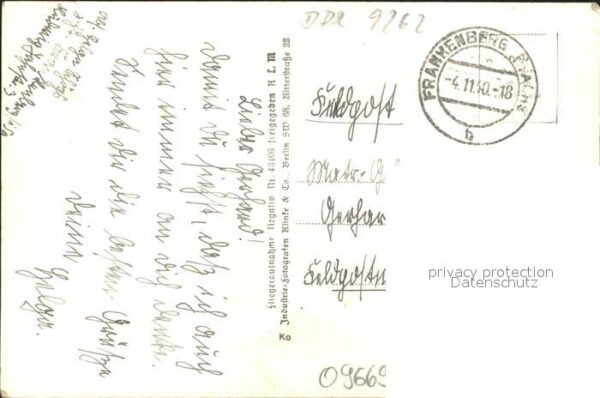 DDR 9262
FRANKENBERG (SACHS)
-4.11.40.-18
b
Lieber Gerhard!
Damit Du siehst, daß ich auch
hier immer an Dich denke,
sendet Dir die besten Grüße
Deine
Helga.
Fliegeraufnahme Negativ Nr. 43206 freigegeben R L M
Industrie-Fotografen Klinke & Co., Berlin SW 68, Ritterstraße 28
Ko
Feldpost
Matr.-G
Gerhar
Feldpostn
privacy protection
Datenschutz
09669